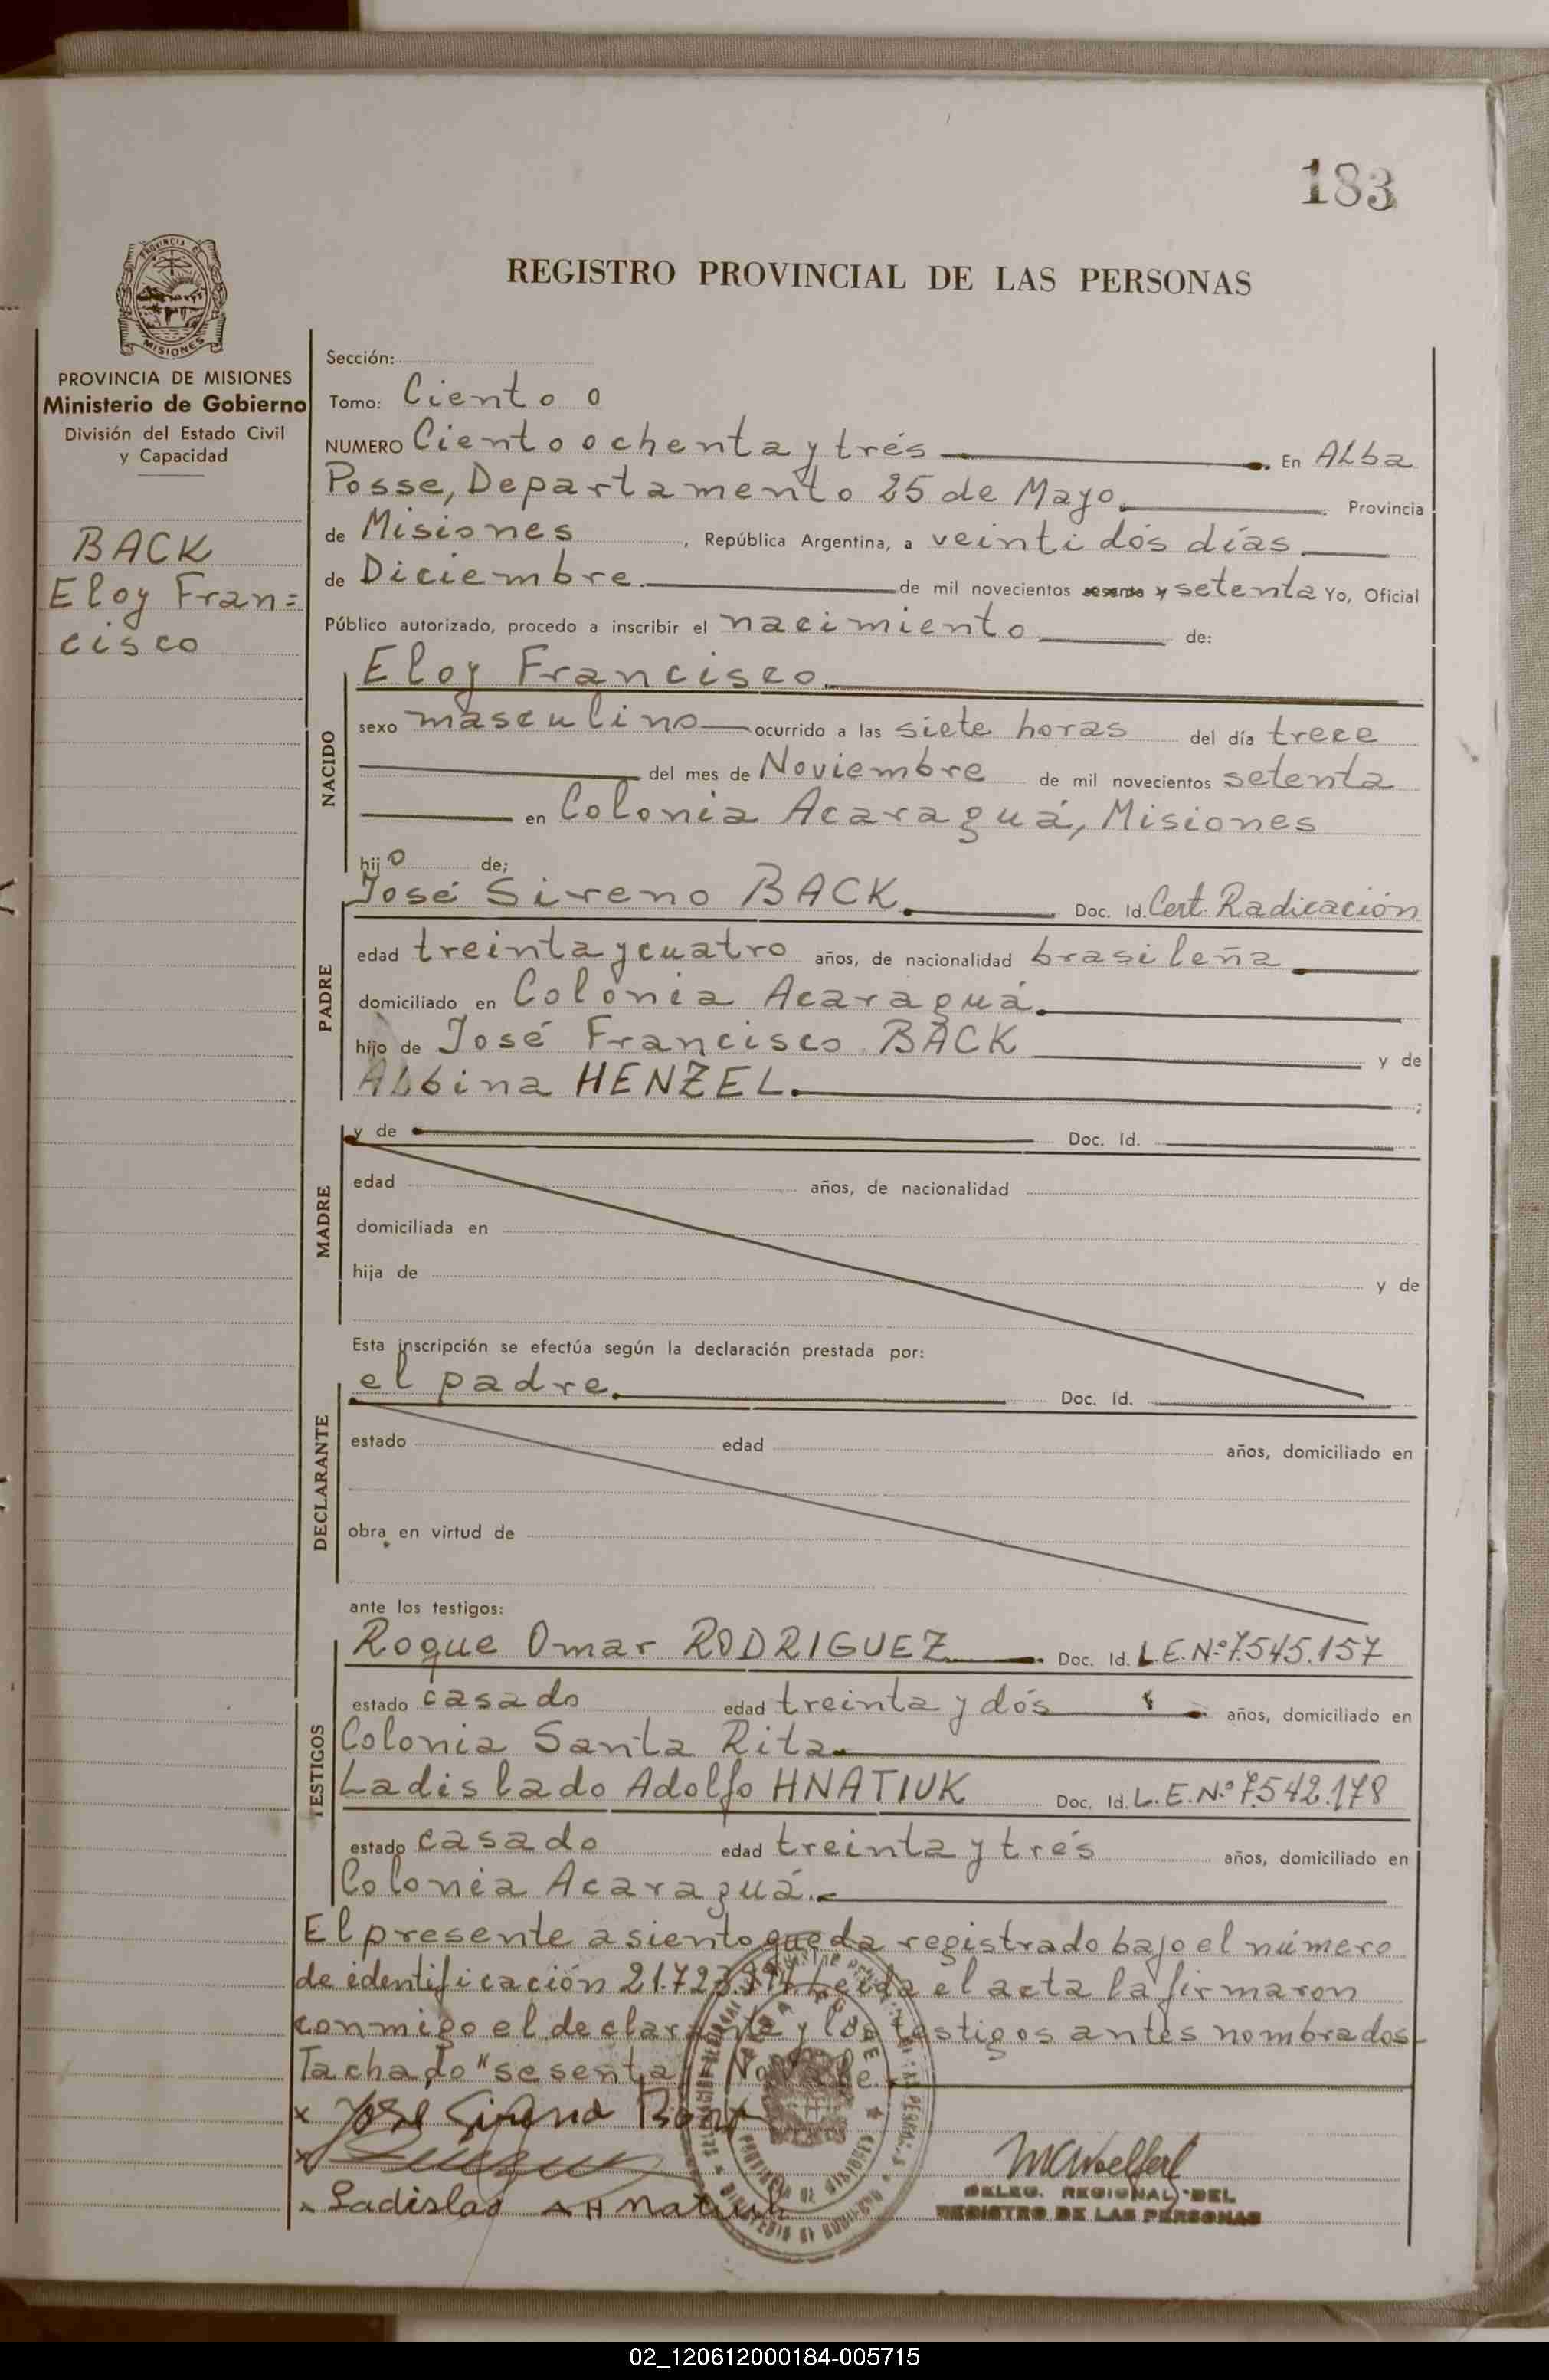 183
REGISTRO PROVINCIAL DE LAS PERSONAS
PROVINCIA DE MISIONES
Ministerio de Gobierno
División del Estado Civil
y Capacidad
BACK
Eloy Fran=
cisco
Sección:
Tomo: Ciento o
NUMERO Ciento ochenta y trés . En Alba
Posse, Departamento 25 de Mayo. Provincia
de Misiones , República Argentina, a veinti dós días
de Diciembre de mil novecientos sesenta y setenta Yo, Oficial
Público autorizado, procedo a inscribir el nacimiento de:
NACIDO
Eloy Francisco
sexo masculino ocurrido a las siete horas del día trece
del mes de Noviembre de mil novecientos setenta
en Colonia Acaraguá, Misiones
hijo de;
PADRE
José Sireno BACK. Doc. Id. Cert. Radicación
edad treinta y cuatro años, de nacionalidad brasileña
domiciliado en Colonia Acaraguá.
hijo de José Francisco BACK y de
Albina HENZEL. ;
MADRE
y de Doc. Id.
edad años, de nacionalidad
domiciliada en
hija de y de
Esta inscripción se efectúa según la declaración prestada por:
DECLARANTE
el padre. Doc. Id.
estado edad años, domiciliado en
obra en virtud de
ante los testigos:
TESTIGOS
Roque Omar RODRIGUEZ Doc. Id. L.E.Nº7.545.157
estado casado edad treinta y dós años, domiciliado en
Colonia Santa Rita
Ladislado Adolfo HNATIUK Doc. Id. L.E.Nº7.542.178
estado casado edad treinta y trés años, domiciliado en
Colonia Acaraguá.
El presente asiento queda registrado bajo el número
de identificación Leída el acta la firmaron
conmigo el declarante y los testigos antes nombrados
Tachado "sesenta" No vale.
x José Sireno Back
x
x Ladislao A Hnatiuk
DELEG. REGIONAL DEL
REGISTRO DE LAS PERSONAS
02_120612000184-005715